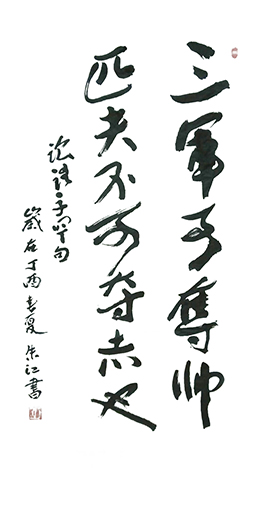 三軍可奪帥
匹夫不可夺志也
论语子罕句
歲在丁酉夏朱江書